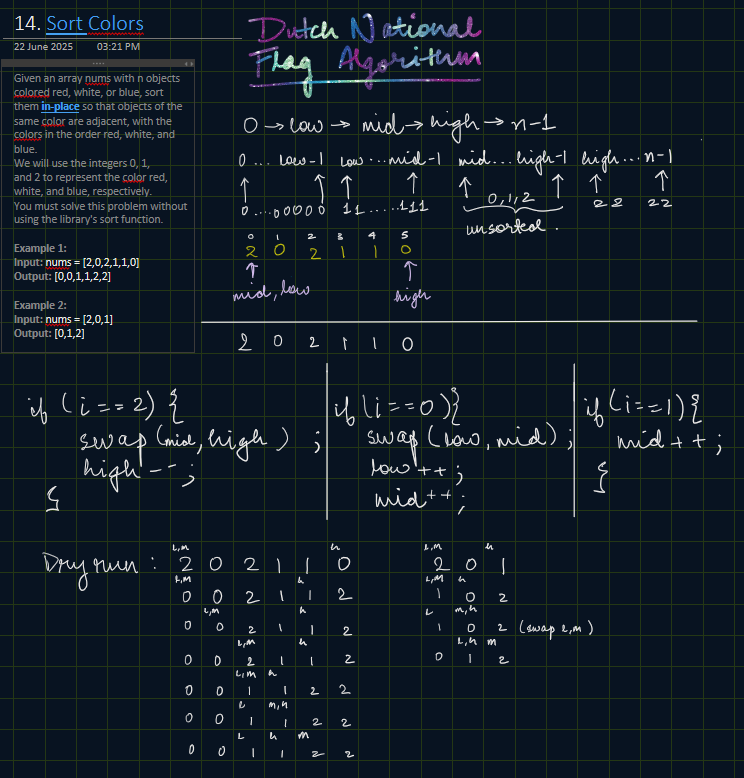 14. Sort Colors
22 June 2025 03:21 PM
Given an array nums with n objects
colored red, white, or blue, sort
them in-place so that objects of the
same color are adjacent, with the
colors in the order red, white, and
blue.
We will use the integers 0, 1,
and 2 to represent the color red,
white, and blue, respectively.
You must solve this problem without
using the library's sort function.
Example 1:
Input: nums = [2,0,2,1,1,0]
Output: [0,0,1,1,2,2]
Example 2:
Input: nums = [2,0,1]
Output: [0,1,2]
Dutch National
Flag Algorithm
0 → low → mid → high → n-1
0 ... low-1 low ... mid-1 mid... high-1 high... n-1
0....00000 11.....111 0,1,2 22 22
unsorted.
0 1 2 3 4 5
2 0 2 1 1 0
mid, low high
2 0 2 1 1 0
if (i == 2) {
swap (mid, high) ;
high-- ;
}
if (i==0){
swap (low, mid) ;
low++ ;
mid++ ;
if (i==1) {
mid++ ;
}
Dry run :
L,M h
2 0 2 1 1 0
L,M h
0 0 2 1 1 2
L,M
0 0 2 1 1 2
L,M h
0 0 2 1 1 2
L,M h
0 0 1 1 2 2
L M,h
0 0 1 1 2 2
L h M
0 0 1 1 2 2
L,M h
2 0 1
L,M h
1 0 2
L M,h
1 0 2 (swap L,M)
L,h M
0 1 2